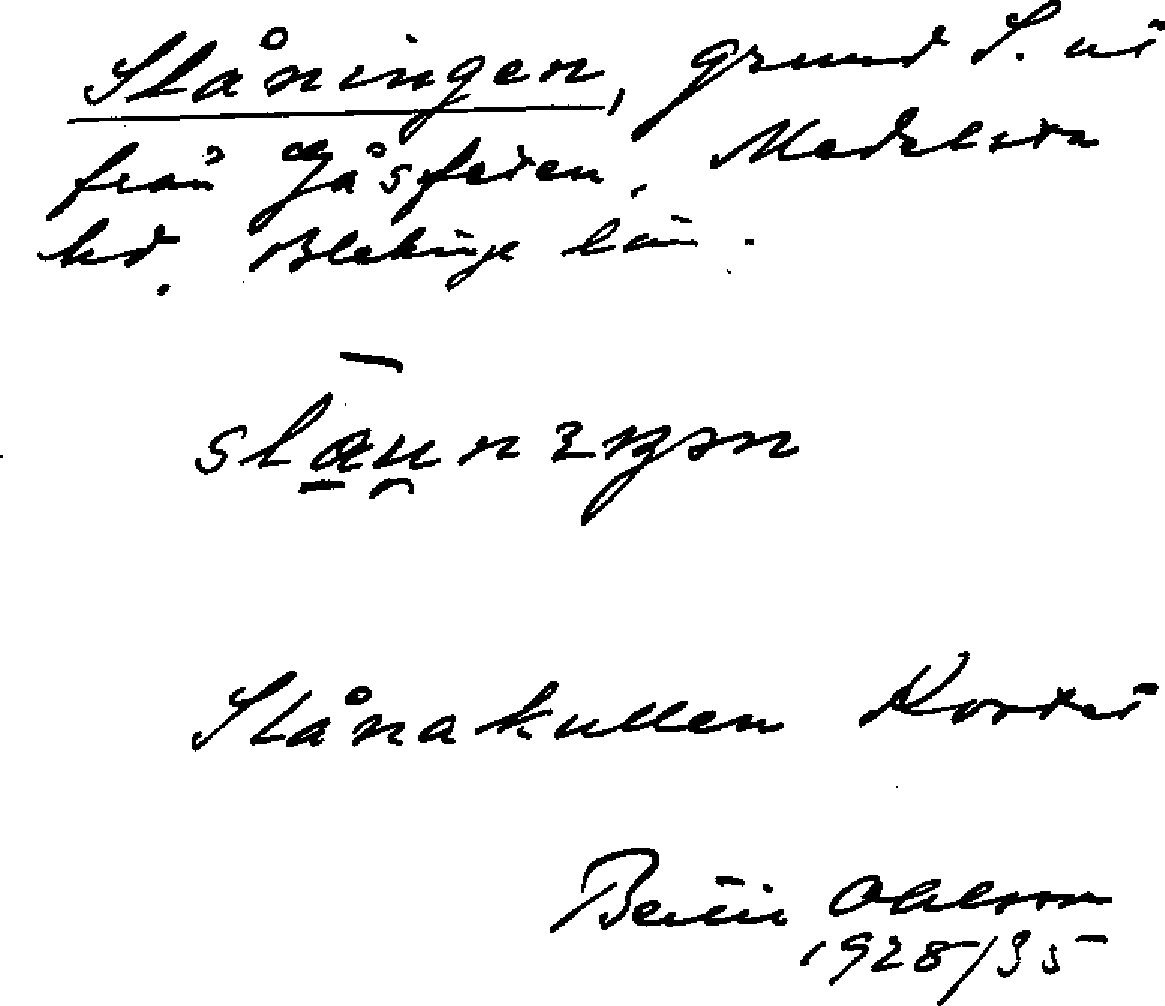 Slåningen, grund S. ut
från Gåsfeten, Medelsta
hd. Blekinge län.
slau̯nɪŋən
Slånakullen Kortet
Bertil Ohlsson
1928/35